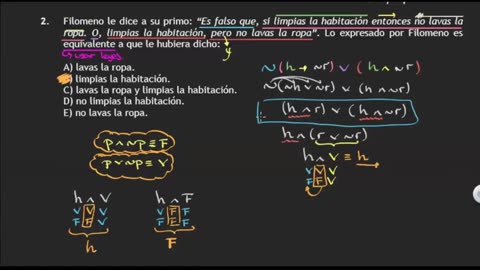 2. Filomeno le dice a su primo: “Es falso que, si limpias la habitación entonces no lavas la
ropa. O, limpias la habitación, pero no lavas la ropa”. Lo expresado por Filomeno es
equivalente a que le hubiera dicho:
y
usar leyes
A) lavas la ropa.
B) limpias la habitación.
C) lavas la ropa y limpias la habitación.
D) no limpias la habitación.
E) no lavas la ropa.
~(h → ~r) ∨ (h ∧ ~r)
~(~h ∨ ~r) ∨ (h ∧ ~r)
(h ∧ r) ∨ (h ∧ ~r)
h ∧ (r ∨ ~r)
h ∧ V ≡ h
V V V
F F V
p ∧ ~p ≡ F
p ∨ ~p ≡ V
h ∧ V
V V V
F F V
h
h ∧ F
V F F
F F F
F